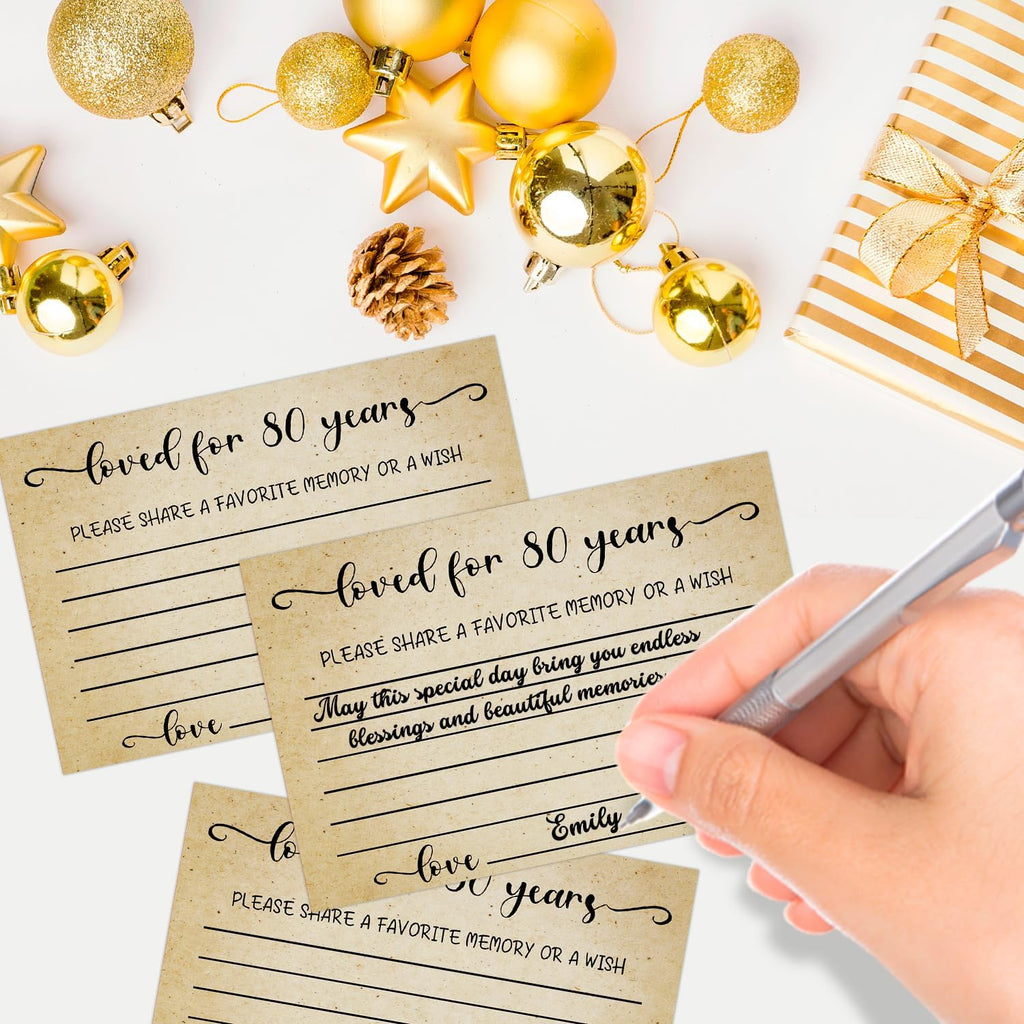 loved for 80 years
PLEASE SHARE A FAVORITE MEMORY OR A WISH
love
loved for 80 years
PLEASE SHARE A FAVORITE MEMORY OR A WISH
May this special day bring you endless
blessings and beautiful memories.
Emily
love
lo
80 years
PLEASE SHARE A FAVORITE MEMORY OR A WISH